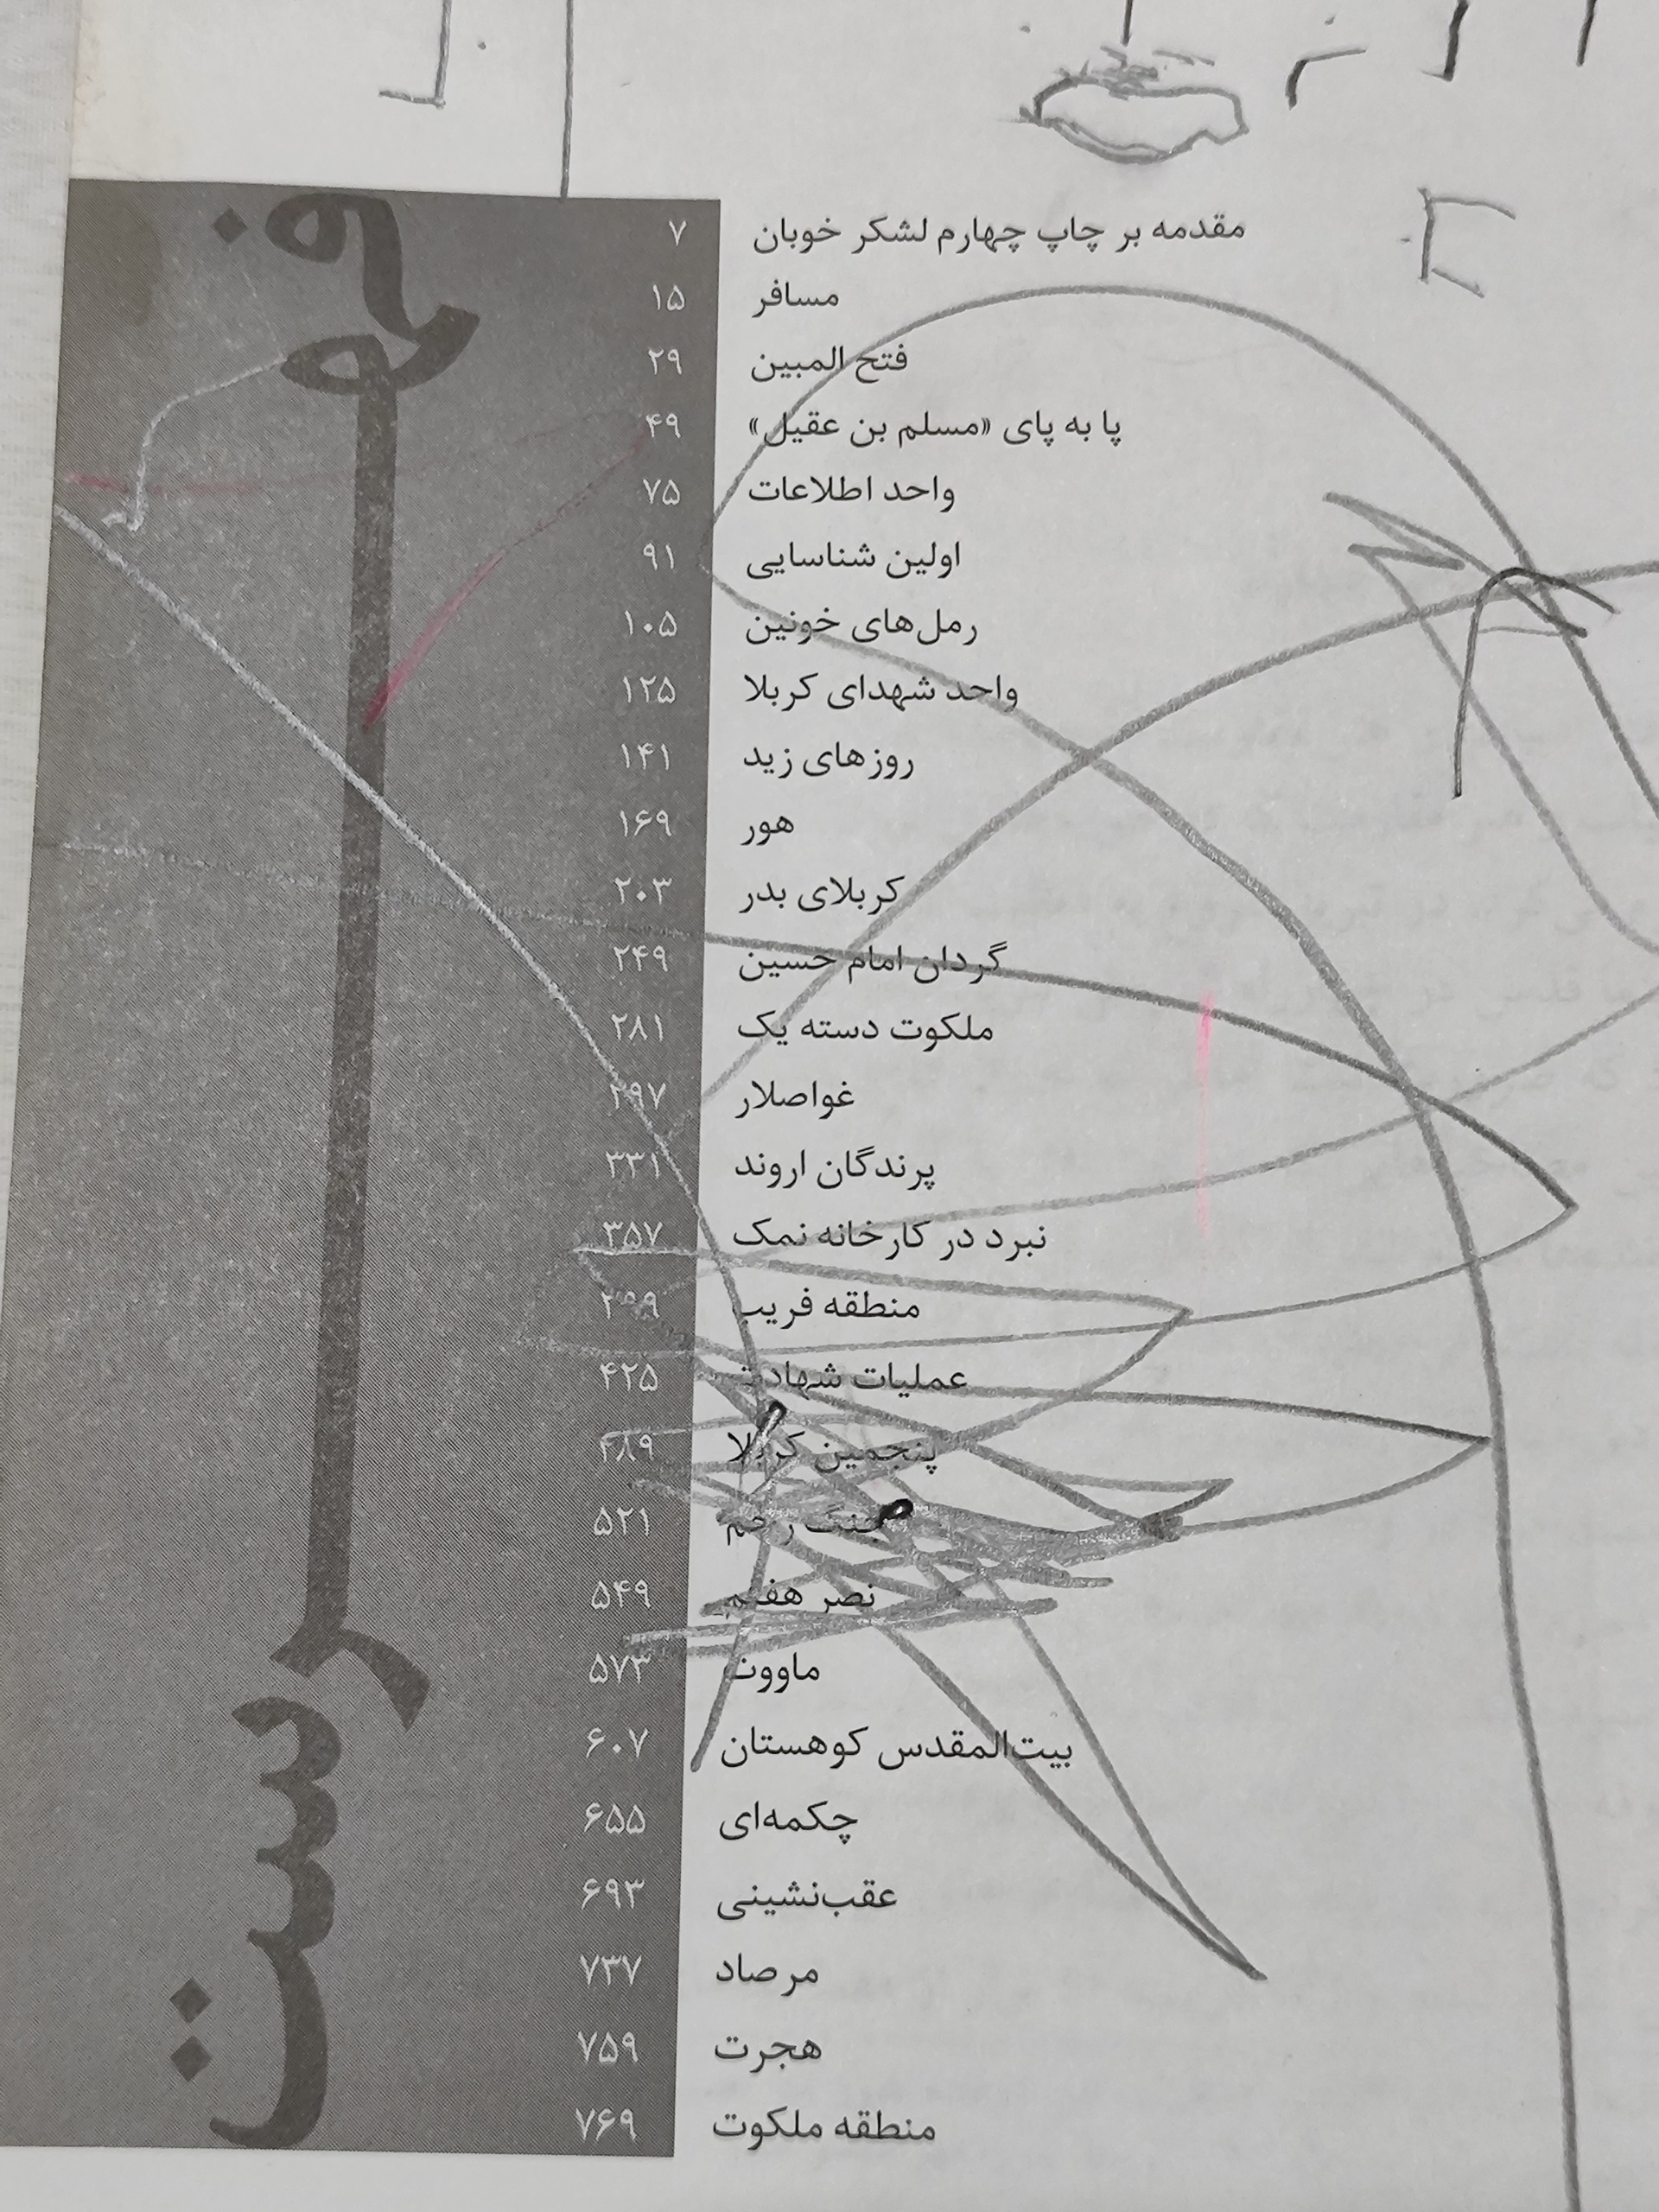 فهرست
مقدمه بر چاپ چهارم لشکر خوبان ۷
مسافر ۱۵
فتح المبین ۲۹
پا به پای «مسلم بن عقیل» ۴۹
واحد اطلاعات ۷۵
اولین شناسایی ۹۱
رمل‌های خونین ۱۰۵
واحد شهدای کربلا ۱۲۵
روزهای زید ۱۴۱
هور ۱۶۹
کربلای بدر ۲۰۳
گردان امام حسین ۲۴۹
ملکوت دسته یک ۲۸۱
غواصلار ۲۹۷
پرندگان اروند ۳۳۱
نبرد در کارخانه نمک ۳۵۷
منطقه فریب
عملیات شهادت ۴۲۵
پنجمین کربلا ۴۸۹
۵۲۱
نصر هفتم ۵۴۹
ماووت ۵۷۳
بیت‌المقدس کوهستان ۶۰۷
چکمه‌ای ۶۵۵
عقب‌نشینی ۶۹۳
مرصاد ۷۳۷
هجرت ۷۵۹
منطقه ملکوت ۷۶۹